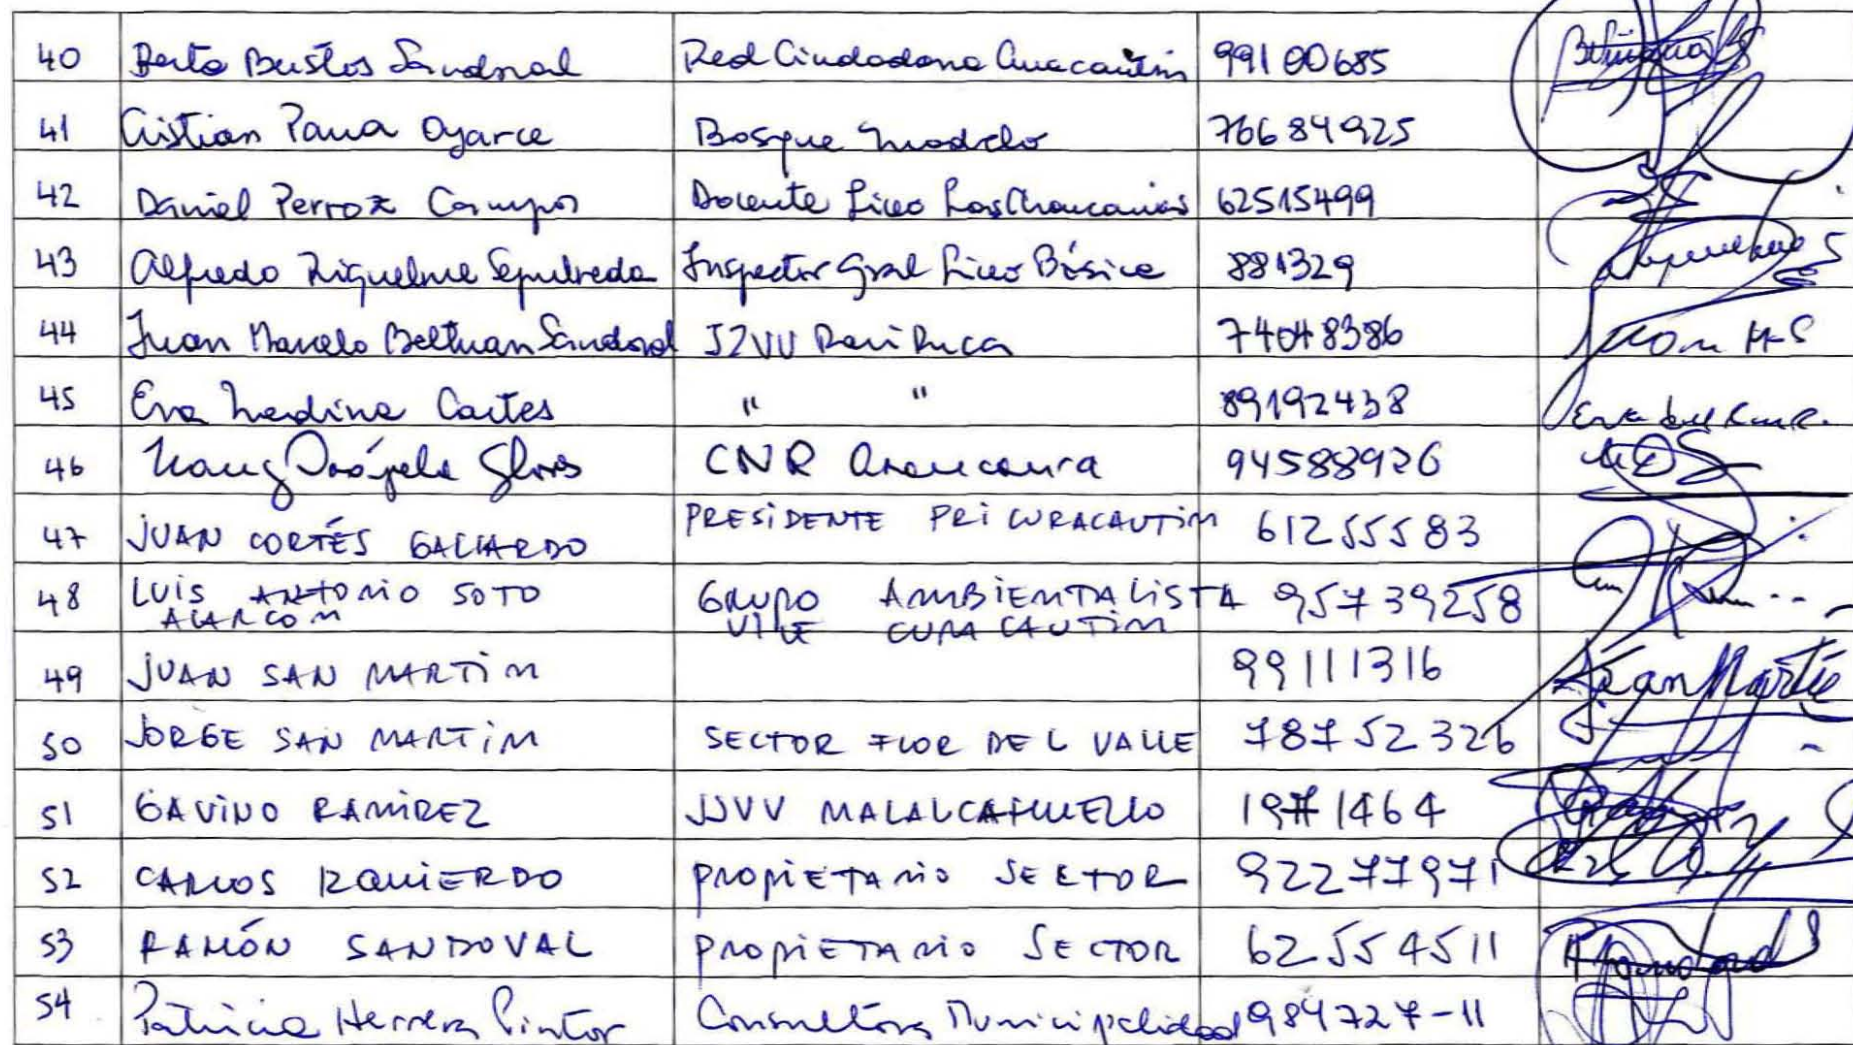 40 Berta Bustos Sandoval Red Ciudadana Curacautín 99100685
41 Cristian Parra Oyarce Bosque Modelo 76684925
42 Daniel Perroz Campos Docente Liceo Las Araucarias 62515499
43 Alfredo Riquelme Sepulveda Inspector Gral Liceo Básico 881329
44 Juan Marcelo Beltran Sandoval JJVV Rari Ruca 74048386
45 Eva Medina Cartes " " 89192438
46 CNR Araucanía 94588926
47 JUAN CORTÉS GALLARDO PRESIDENTE PRI CURACAUTIN 61255583
48 LUIS ANTONIO SOTO GRUPO AMBIENTALISTA 95739258
ALARCON VIVE CURACAUTIN
49 JUAN SAN MARTIN 99111316
50 JORGE SAN MARTIN SECTOR FLOR DEL VALLE 78752326
51 GAVINO RAMIREZ JJVV MALALCAHUELLO 1971464
52 CARLOS IZQUIERDO PROPIETARIO SECTOR 92277971
53 RAMÓN SANDOVAL PROPIETARIO SECTOR 62554511
54 Patricia Herrera Pintor Consultora Municipalidad 984727-11